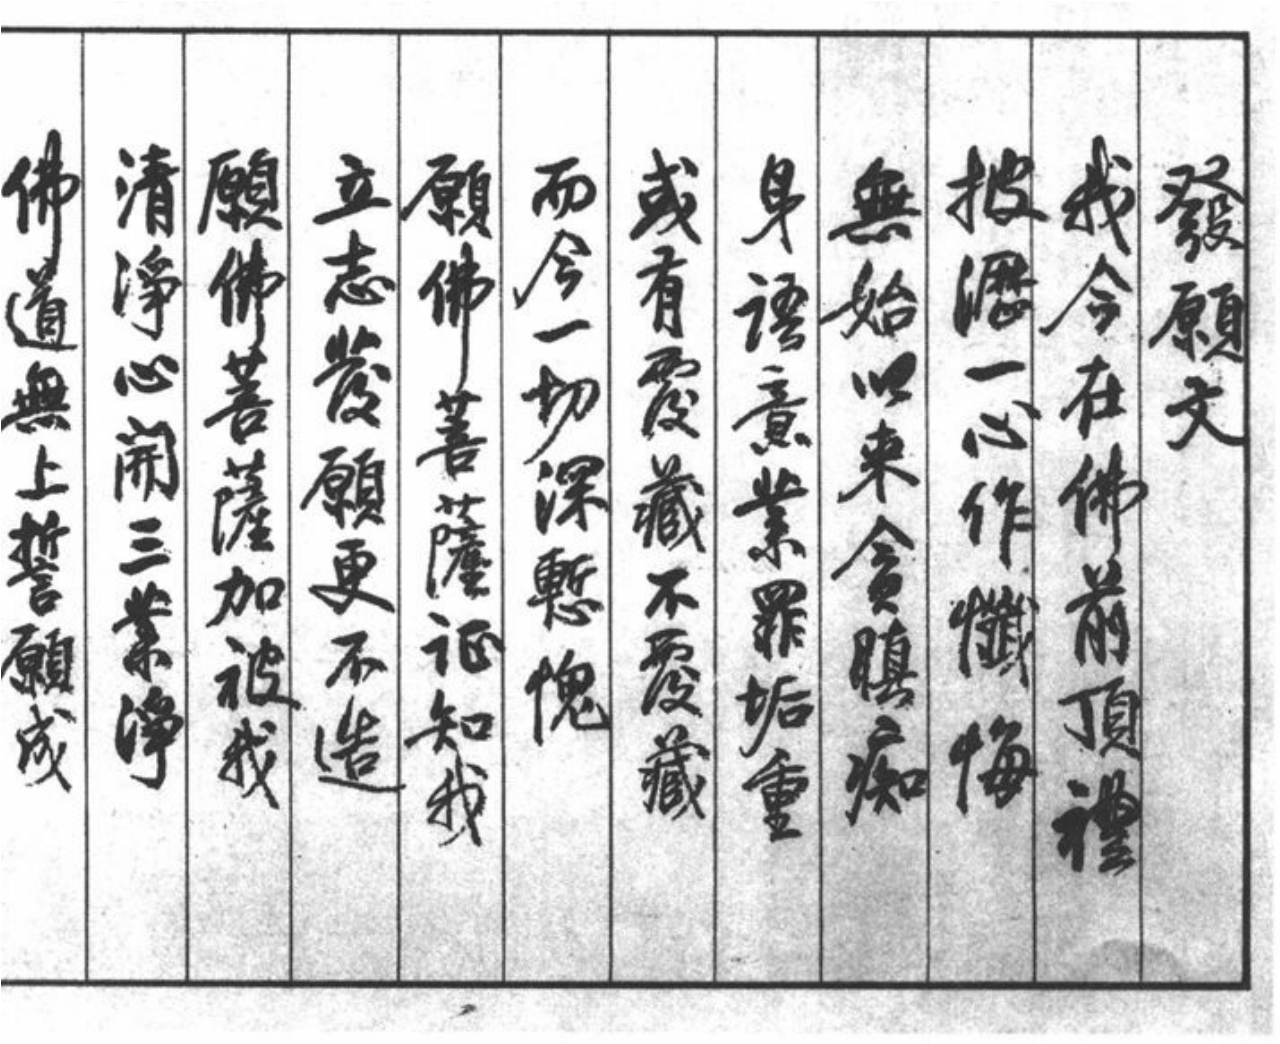 發願文
我今在佛前頂禮
披瀝一心作懺悔
無始以来貪瞋痴
身語意業罪垢重
或有覆藏不覆藏
而今一切深慙愧
願佛菩薩证知我
立志發願更不造
願佛菩薩加被我
清淨心開三業淨
佛道無上誓願成